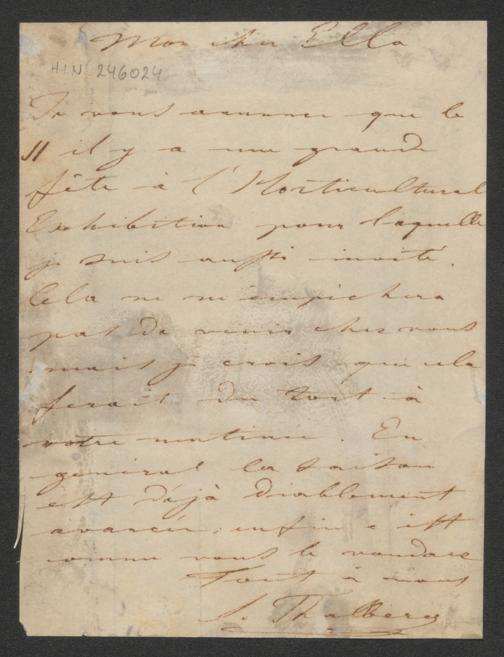 Mon cher Ella
HIN 246024
Je vous annonce que le
11 il y a une grande
fête à l'Horticultural
Exhibition pour laquelle
je suis aussi invité.
Cela ne m'empêchera
pas de venir chez vous
mais je crois que cela
ferait du tort à
votre matinée. En
général la saison
est déjà diablement
avancée; enfin c'est
comme vous le voudrez
Tout à vous
S. Thalberg